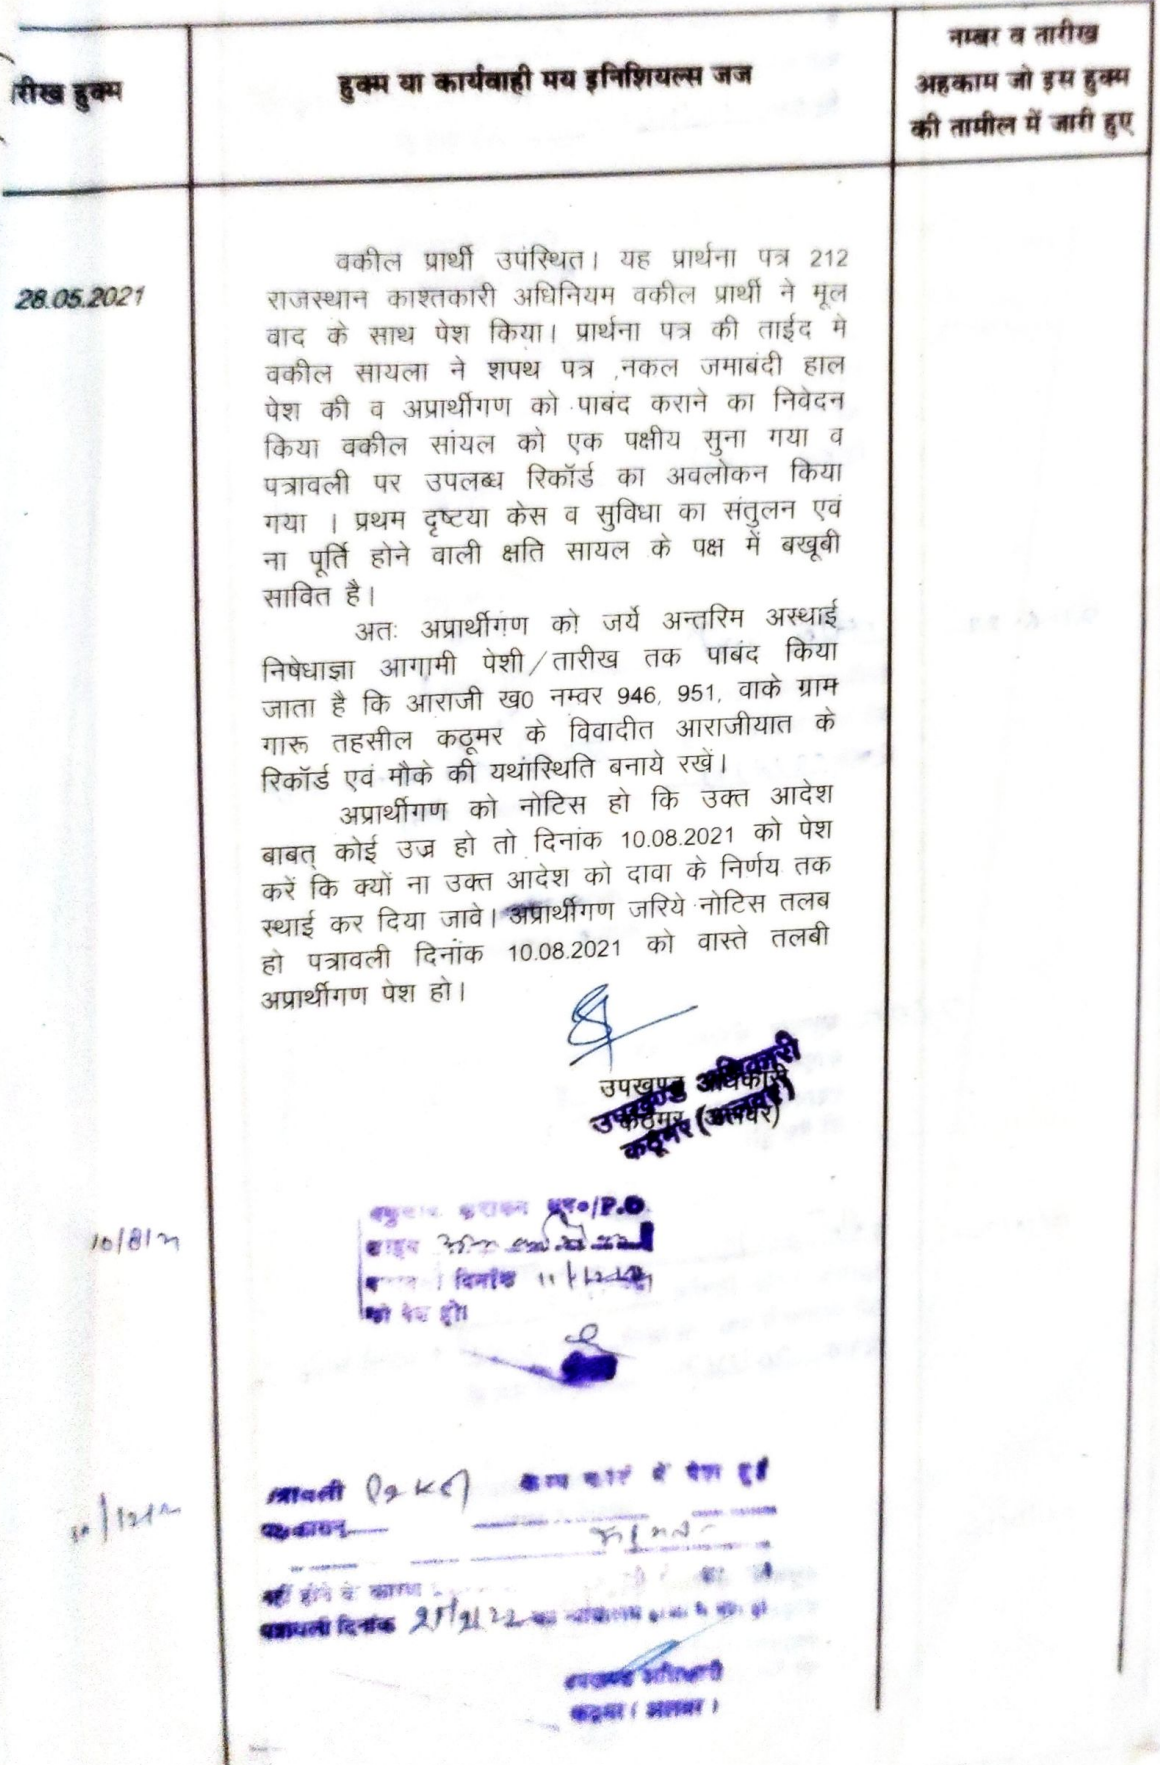 रीख हुक्म
हुक्म या कार्यवाही मय इनिशियल्स जज
नम्बर व तारीख
अहकाम जो इस हुक्म
की तामील में जारी हुए
28.05.2021
वकील प्रार्थी उपंस्थित। यह प्रार्थना पत्र 212
राजस्थान काश्तकारी अधिनियम वकील प्रार्थी ने मूल
वाद के साथ पेश किया। प्रार्थना पत्र की ताईद मे
वकील सायला ने शपथ पत्र ,नकल जमाबंदी हाल
पेश की व अप्रार्थीगण को पाबंद कराने का निवेदन
किया वकील सांयल को एक पक्षीय सुना गया व
पत्रावली पर उपलब्ध रिकॉर्ड का अवलोकन किया
गया । प्रथम दृष्टया केस व सुविधा का संतुलन एवं
ना पूर्ति होने वाली क्षति सायल के पक्ष में बखूबी
सावित है।
अतः अप्रार्थीगण को जर्ये अन्तरिम अस्थाई
निषेधाज्ञा आगामी पेशी/तारीख तक पाबंद किया
जाता है कि आराजी ख0 नम्वर 946, 951, वाके ग्राम
गारू तहसील कठूमर के विवादीत आराजीयात के
रिकॉर्ड एवं मौके की यथास्थिति बनाये रखें।
अप्रार्थीगण को नोटिस हो कि उक्त आदेश
बाबत् कोई उज्र हो तो दिनांक 10.08.2021 को पेश
करें कि क्यों ना उक्त आदेश को दावा के निर्णय तक
स्थाई कर दिया जावे। अप्रार्थीगण जरिये नोटिस तलब
हो पत्रावली दिनांक 10.08.2021 को वास्ते तलबी
अप्रार्थीगण पेश हो।
उपखण्ड अधिकारी
कठूमर (अलवर)
उपखण्ड अधिकारी
कठूमर (अलवर)
10/8/21
P.O
दिनांक
को पेश हो।
कैम्प कोर्ट में पेश हुई
नहीं होने के कारण
पत्रावली दिनांक
उपखण्ड अधिकारी
कठूमर (अलवर)